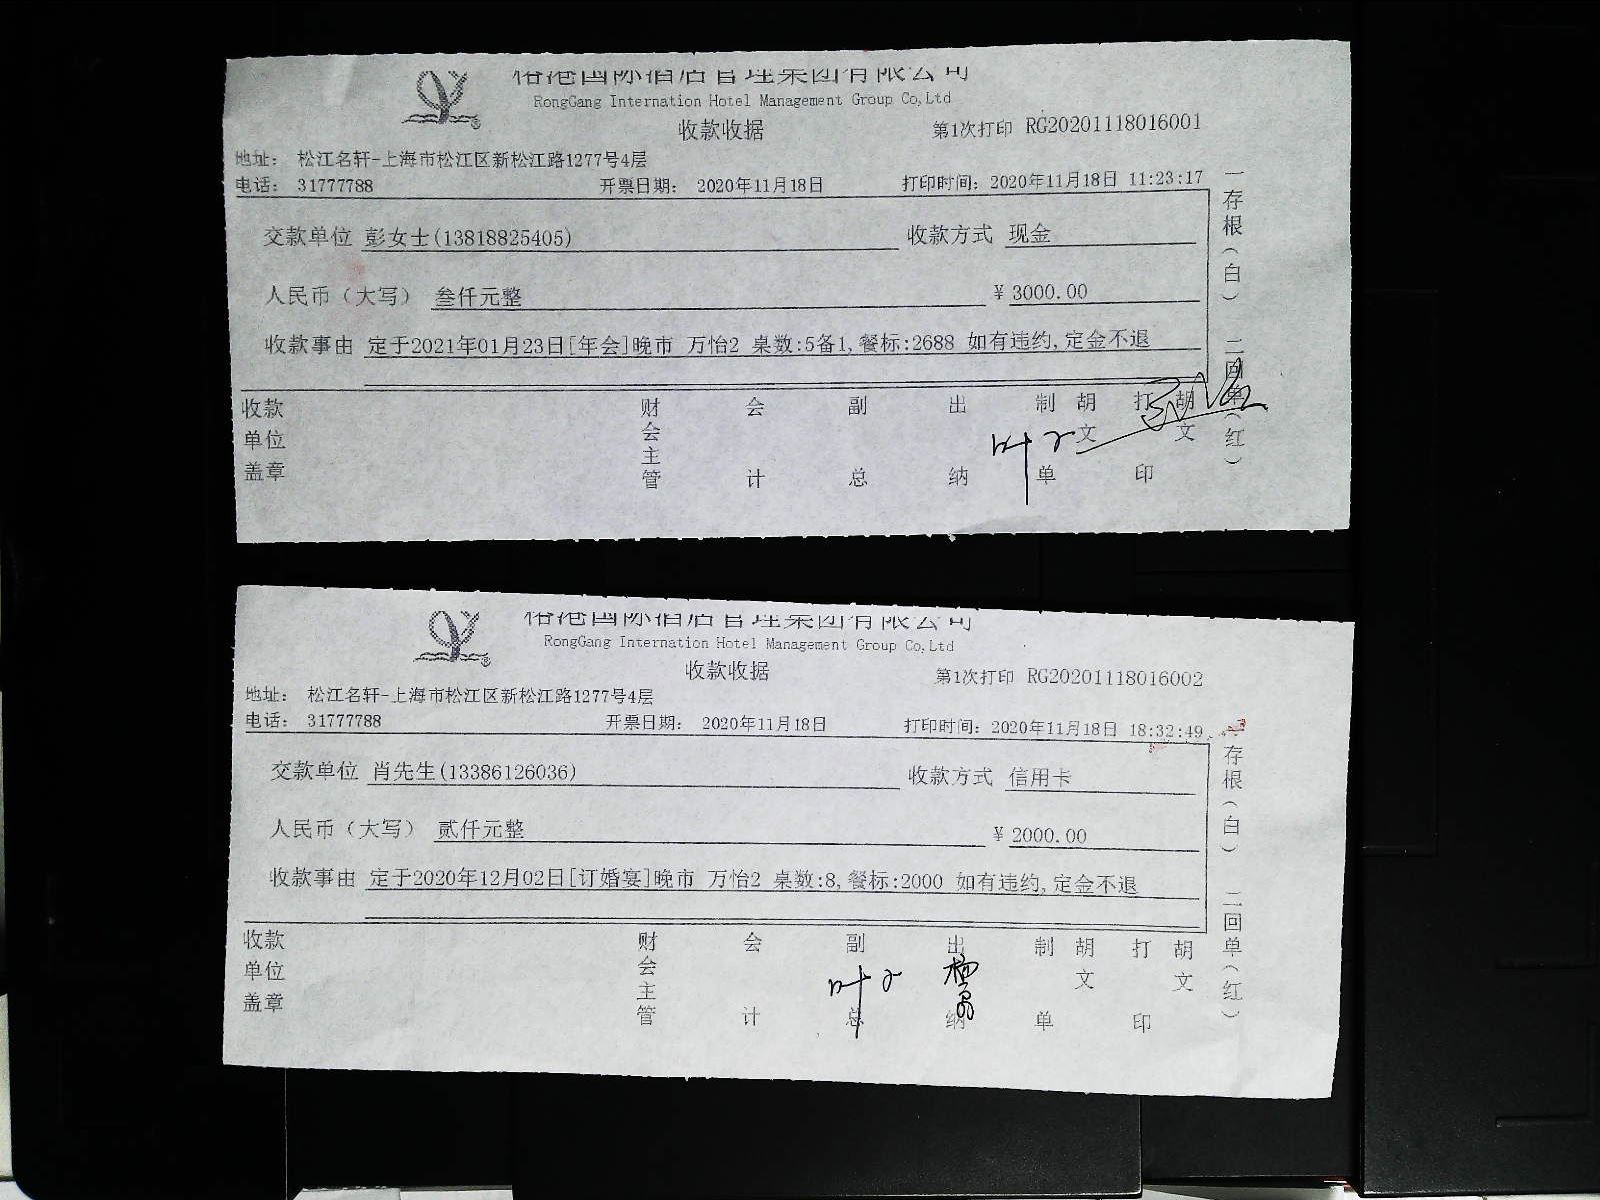 榕港国际酒店管理集团有限公司
RongGang Internation Hotel Management Group Co,Ltd
收款收据 第1次打印 RG20201118016001
地址: 松江名轩-上海市松江区新松江路1277号4层
电话: 31777788 开票日期: 2020年11月18日 打印时间: 2020年11月18日 11:23:17
交款单位 彭女士(13818825405) 收款方式 现金
人民币(大写) 叁仟元整 ¥ 3000.00
收款事由 定于2021年01月23日[年会]晚市 万怡2 桌数:5备1,餐标:2688 如有违约,定金不退
收款单位盖章 财会主管 会计 副总 出纳 制单 胡文 打印 胡文
一存根(白) 二回单(红)
榕港国际酒店管理集团有限公司
RongGang Internation Hotel Management Group Co,Ltd
收款收据 第1次打印 RG20201118016002
地址: 松江名轩-上海市松江区新松江路1277号4层
电话: 31777788 开票日期: 2020年11月18日 打印时间: 2020年11月18日 18:32:49
交款单位 肖先生(13386126036) 收款方式 信用卡
人民币(大写) 贰仟元整 ¥ 2000.00
收款事由 定于2020年12月02日[订婚宴]晚市 万怡2 桌数:8,餐标:2000 如有违约,定金不退
收款单位盖章 财会主管 会计 副总 出纳 制单 胡文 打印 胡文
一存根(白) 二回单(红)